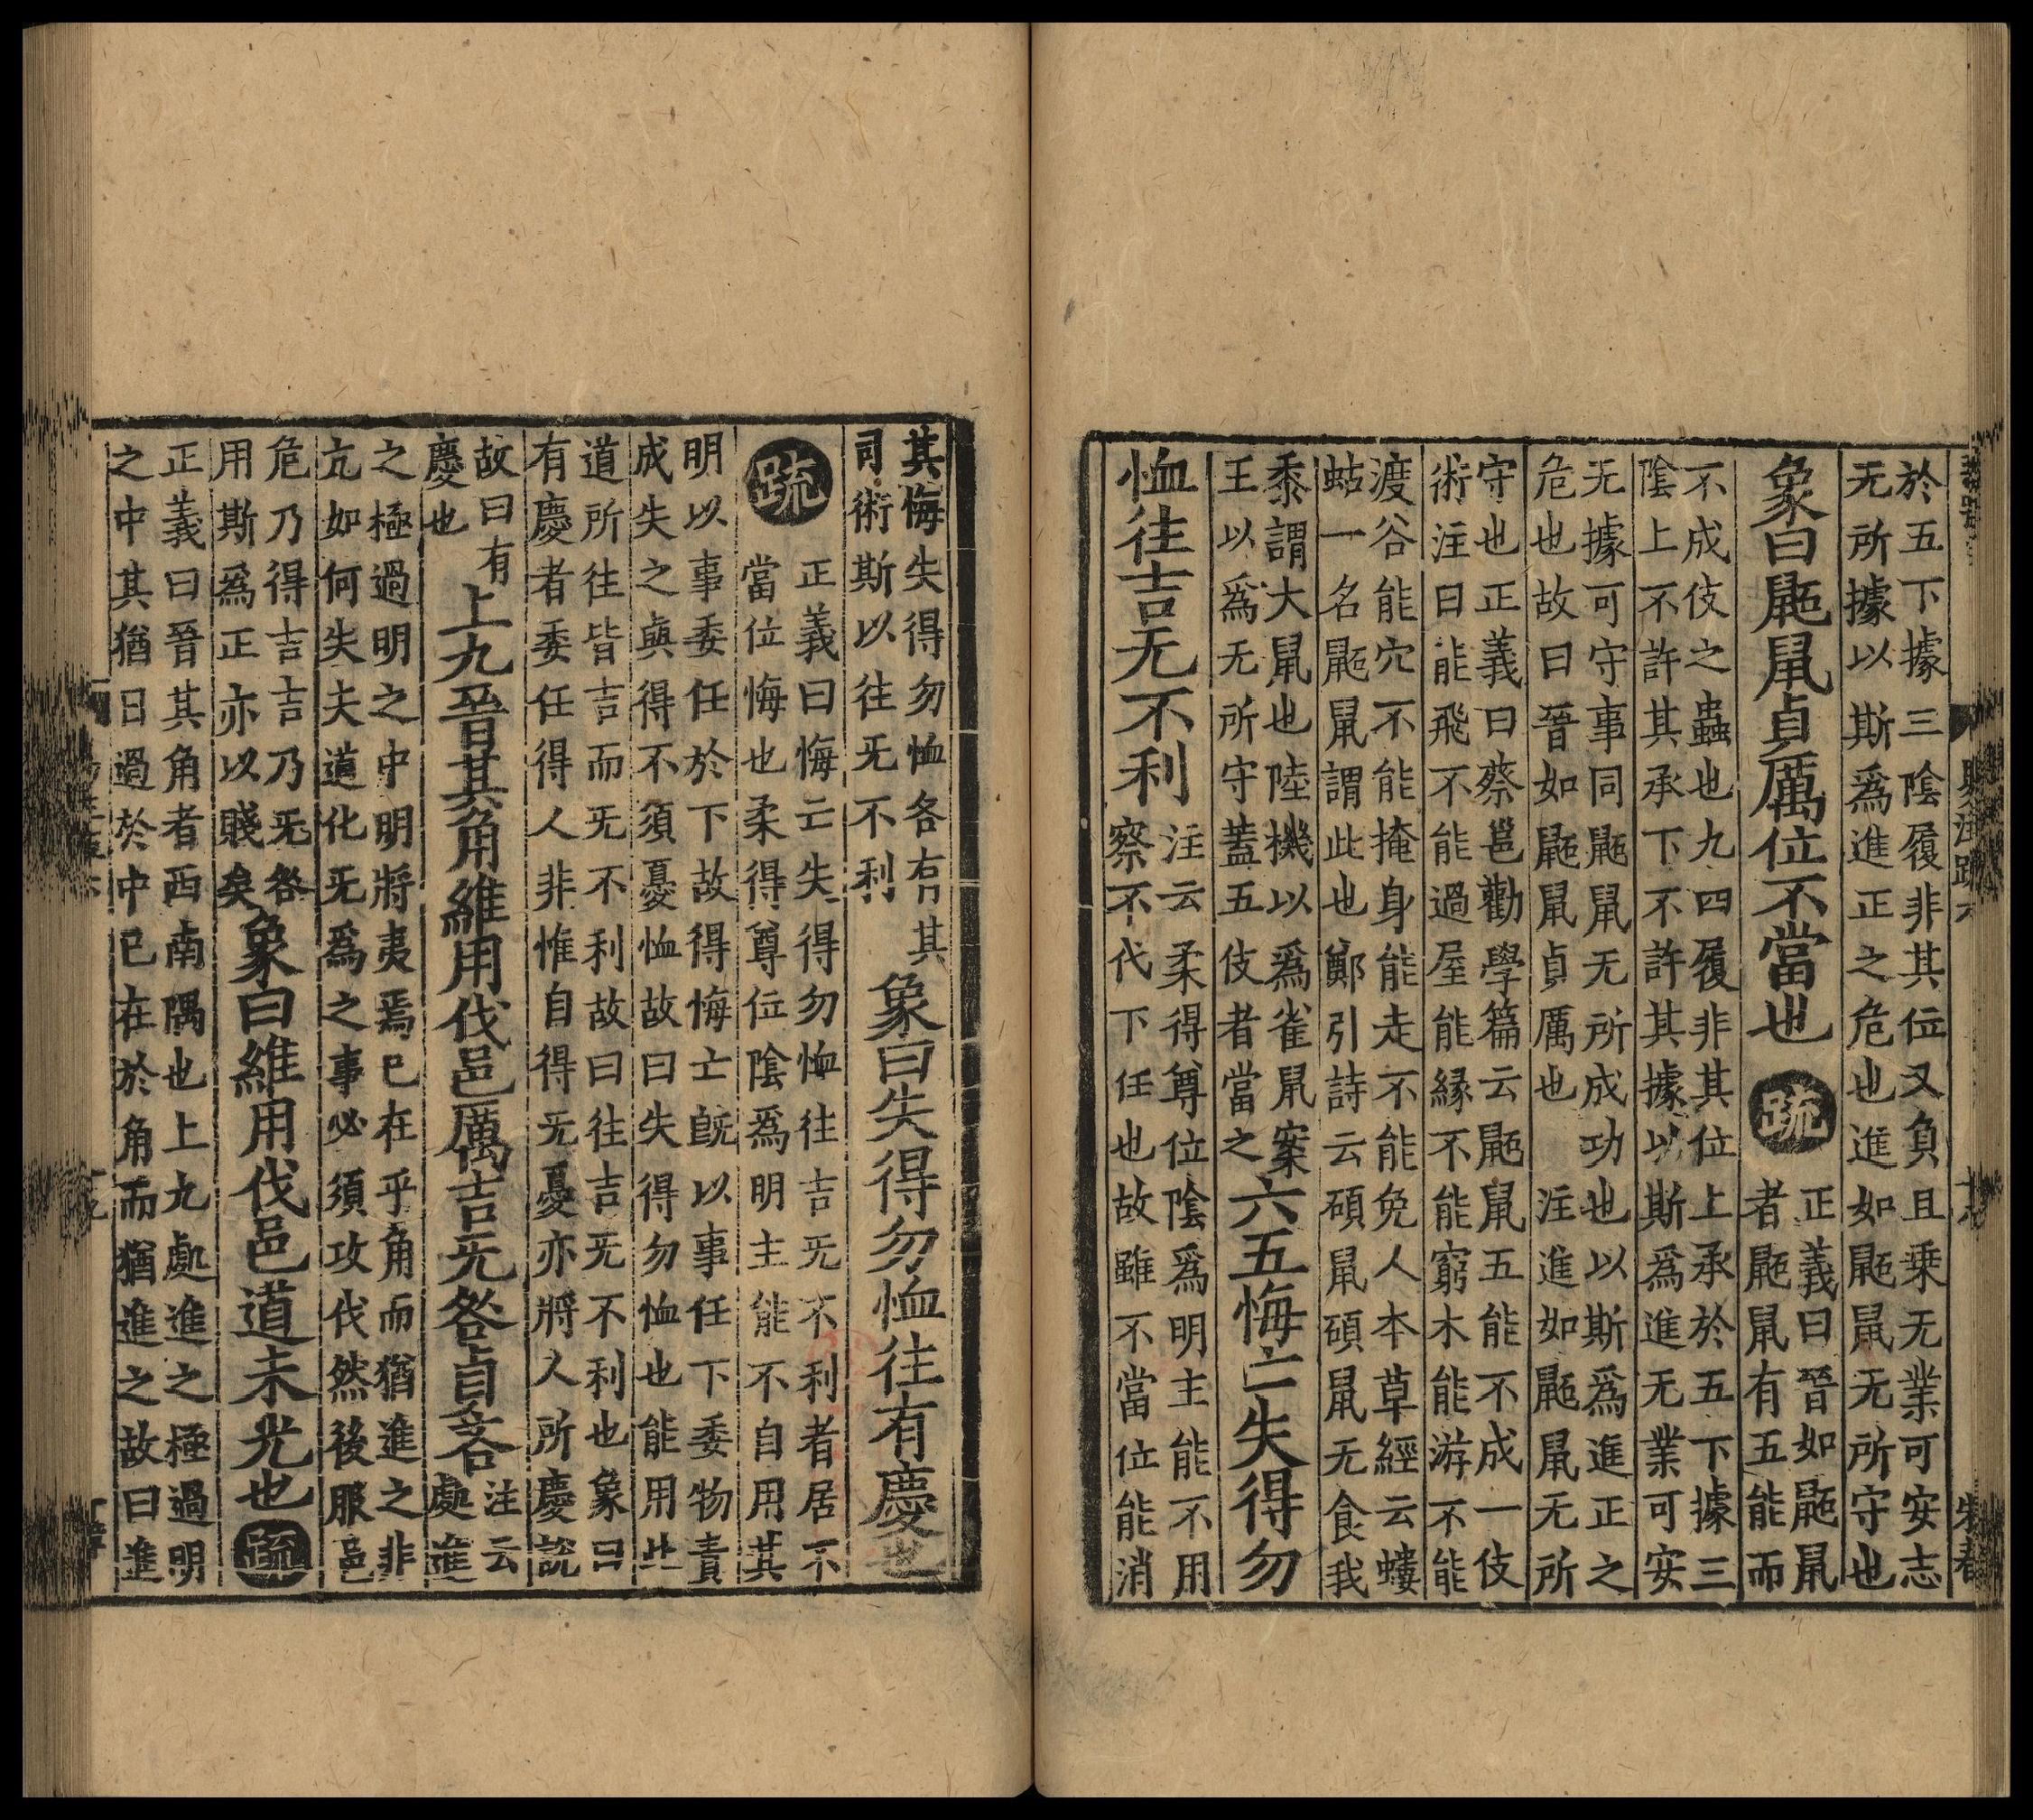 於五下據三陰履非其位又負且乗无業可安志
无所據以斯爲進正之危也進如鼫鼠无所守也
象曰鼫鼠貞厲位不當也 疏 正義曰晉如鼫鼠
者鼫鼠有五能而
不成伎之蟲也九四履非其位上承於五下據三
陰上不許其承下不許其據以斯爲進无業可安
无據可守事同鼫鼠无所成功也以斯爲進正之
危也故曰晉如鼫鼠貞厲也 注進如鼫鼠无所
守也正義曰蔡邕勸學篇云鼫鼠五能不成一伎
術注曰能飛不能過屋能縁不能窮木能游不能
渡谷能穴不能掩身能走不能免人本草經云螻
蛄一名鼫鼠謂此也鄭引詩云碩鼠碩鼠无食我
黍謂大鼠也陸機以爲雀鼠案
王以爲无所守蓋五伎者當之
六五悔亡失得勿
恤往吉无不利
注云柔得尊位陰爲明主能不用
察不代下任也故雖不當位能消
其悔失得勿恤各有其
司術斯以往旡不利
象曰失得勿恤往有慶也
疏 正義曰悔亡失得勿恤往吉旡不利者居不
當位悔也柔得尊位陰爲明主能不自用其
明以事委任於下故得悔亡旣以事任下委物責
成失之與得不須憂恤故曰失得勿恤也能用此
道所往皆吉而旡不利故曰往吉旡不利也象曰
有慶者委任得人非惟自得旡憂亦將人所慶說
故曰有
慶也
上九晉其角維用伐邑厲吉旡咎貞吝
注云
處進
之極過明之中明將夷焉已在乎角而猶進之非
亢如何失夫道化旡爲之事必須攻伐然後服邑
危乃得吉吉乃旡咎
用斯爲正亦以賤矣
象曰維用伐邑道未光也 疏
正義曰晉其角者西南隅也上九處進之極過明
之中其猶日過於中已在於角而猶進之故曰進